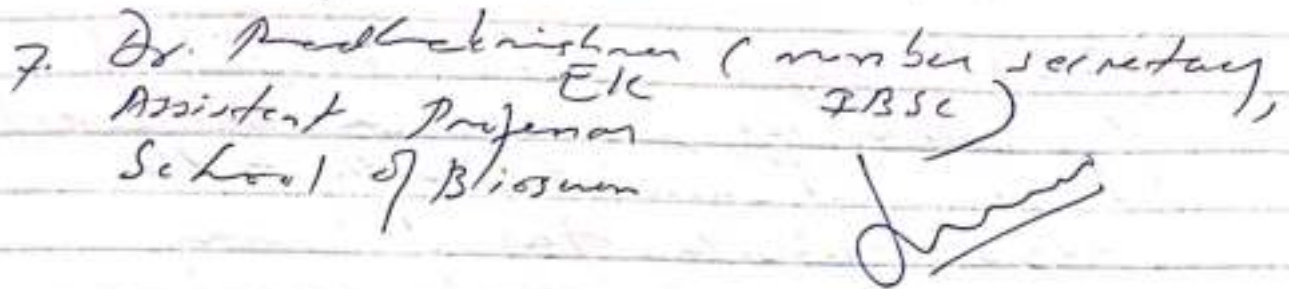 7. Dr. Radhakrishnan EK (member secretary, IBSC)
Assistant Professor
School of Biosciences